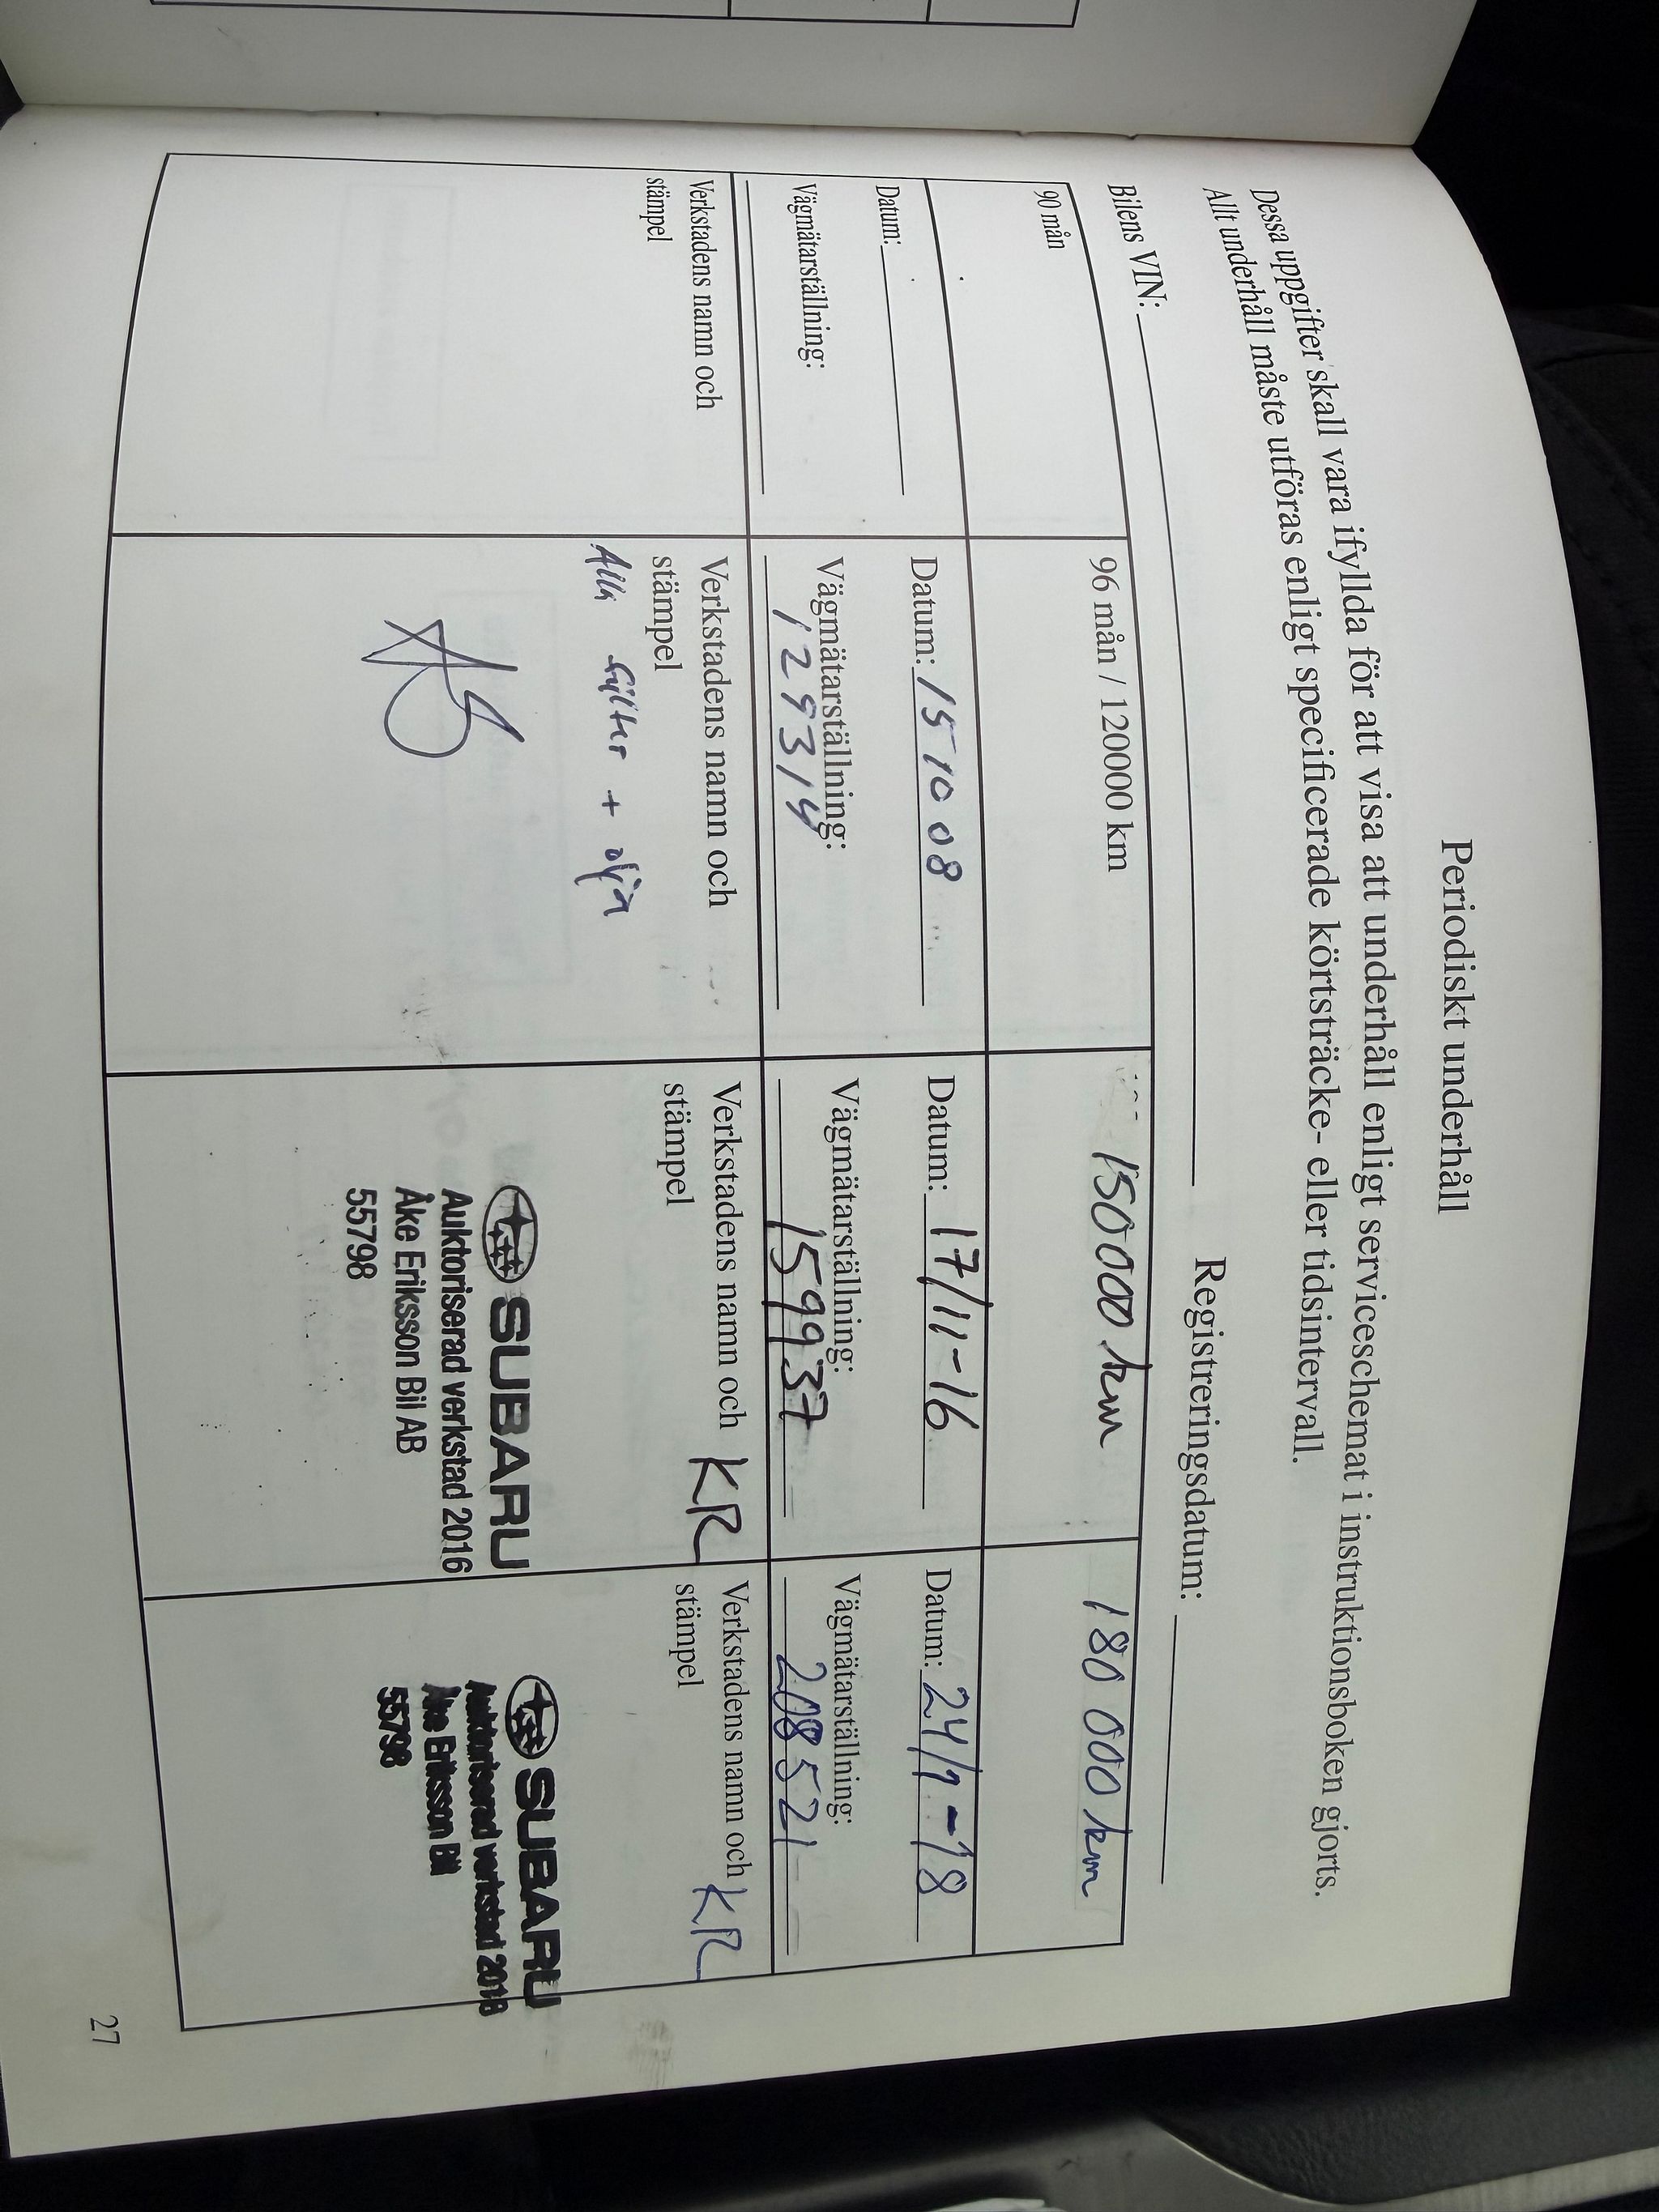 Periodiskt underhåll
Dessa uppgifter skall vara ifyllda för att visa att underhåll enligt serviceschemat i instruktionsboken gjorts.
Allt underhåll måste utföras enligt specificerade körtsträcke- eller tidsintervall.
Bilens VIN:
Registreringsdatum:
90 mån
Datum:
Vägmätarställning:
Verkstadens namn och
stämpel
96 mån / 120000 km
Datum: 15 10 08
Vägmätarställning:
129314
Verkstadens namn och
stämpel
Alla filter + olja
150000 km
Datum: 17/11-16
Vägmätarställning:
159937
Verkstadens namn och KR
stämpel
SUBARU
Auktoriserad verkstad 2016
Åke Eriksson Bil AB
55798
180 000 km
Datum: 24/1-18
Vägmätarställning:
208521
Verkstadens namn och KR
stämpel
SUBARU
Auktoriserad verkstad 2018
Åke Eriksson Bil
55798
27